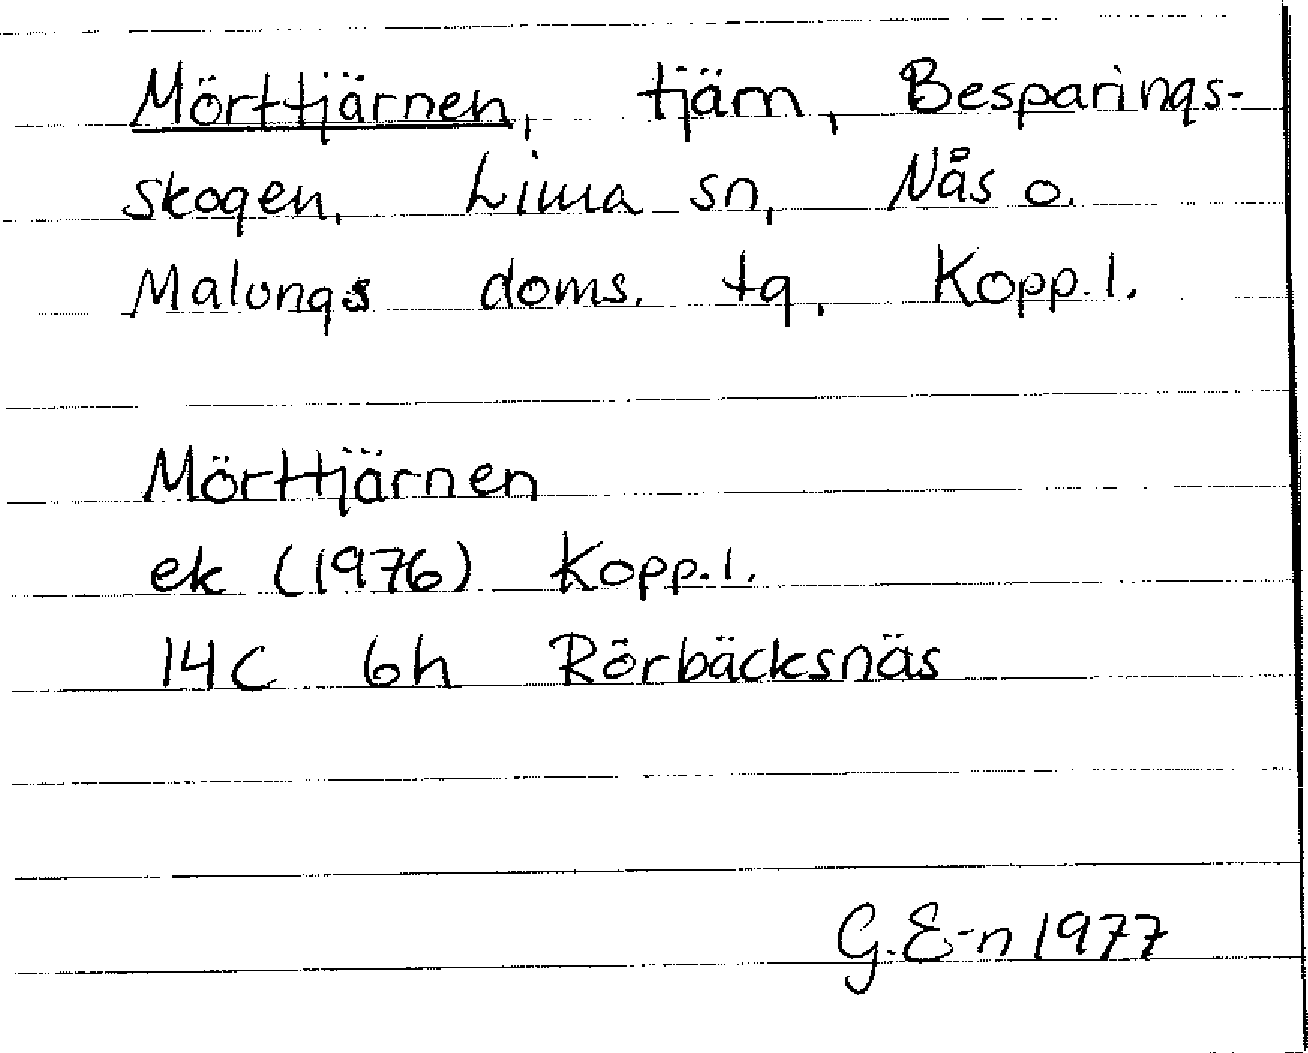 Mörttjärnen, tjärn, Besparings-
skogen, Lima sn, Nås o.
Malungs doms. tg, Kopp. l.
Mörttjärnen
ek (1976) Kopp. l.
14C 6h Rörbäcksnäs
G. E-n 1977